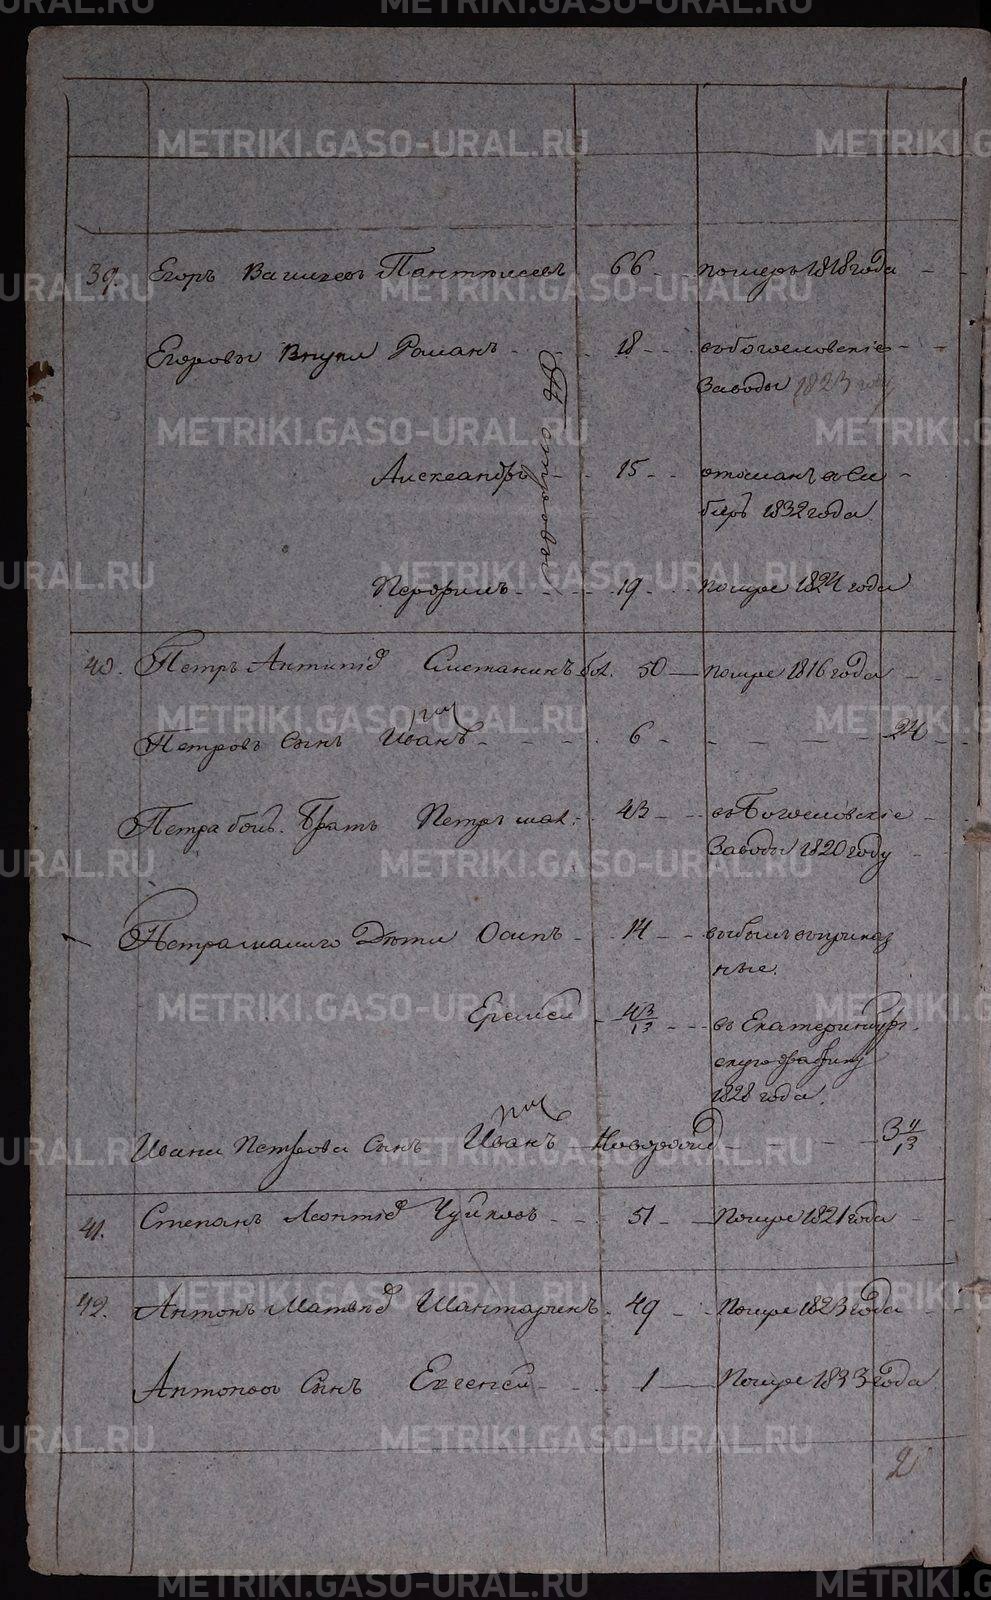 39. Егоръ Васильевъ Пантелеевъ 66 померъ 1818 года
Егоровы Внуки Романъ 18 въ богословскіе
Заводы 1823 году
Александръ 15 отосланъ въ Си-
биръ 1832 года
19 помре 1824 года
40. Петръ Антипіѣ Сметанинъ бол. 50 помре 1816 года
Петровъ Сынъ Иванъ 6 24
Петра бол. Братъ Петръ мал. 43 въ Богословскіе
Заводы 1820 году
Петра малаго Дѣти Осипъ 14 выбылъ въ приказ
ные.
Елисей 4 3/13 въ Екатеринбург-
скую фабрику
1828 года
Ивана Петрова Сынъ Иванъ Новорожд 3 4/13
41. Степанъ Леонтіѣ Чуйковъ 51 Помре 1821 года
42. Антонъ Матвѣѣ Шантаринъ 49 Помре 1823 года
Антоновъ Сынъ Евгеней 1 Помре 1833 года
2
METRIKI.GASO-URAL.RU